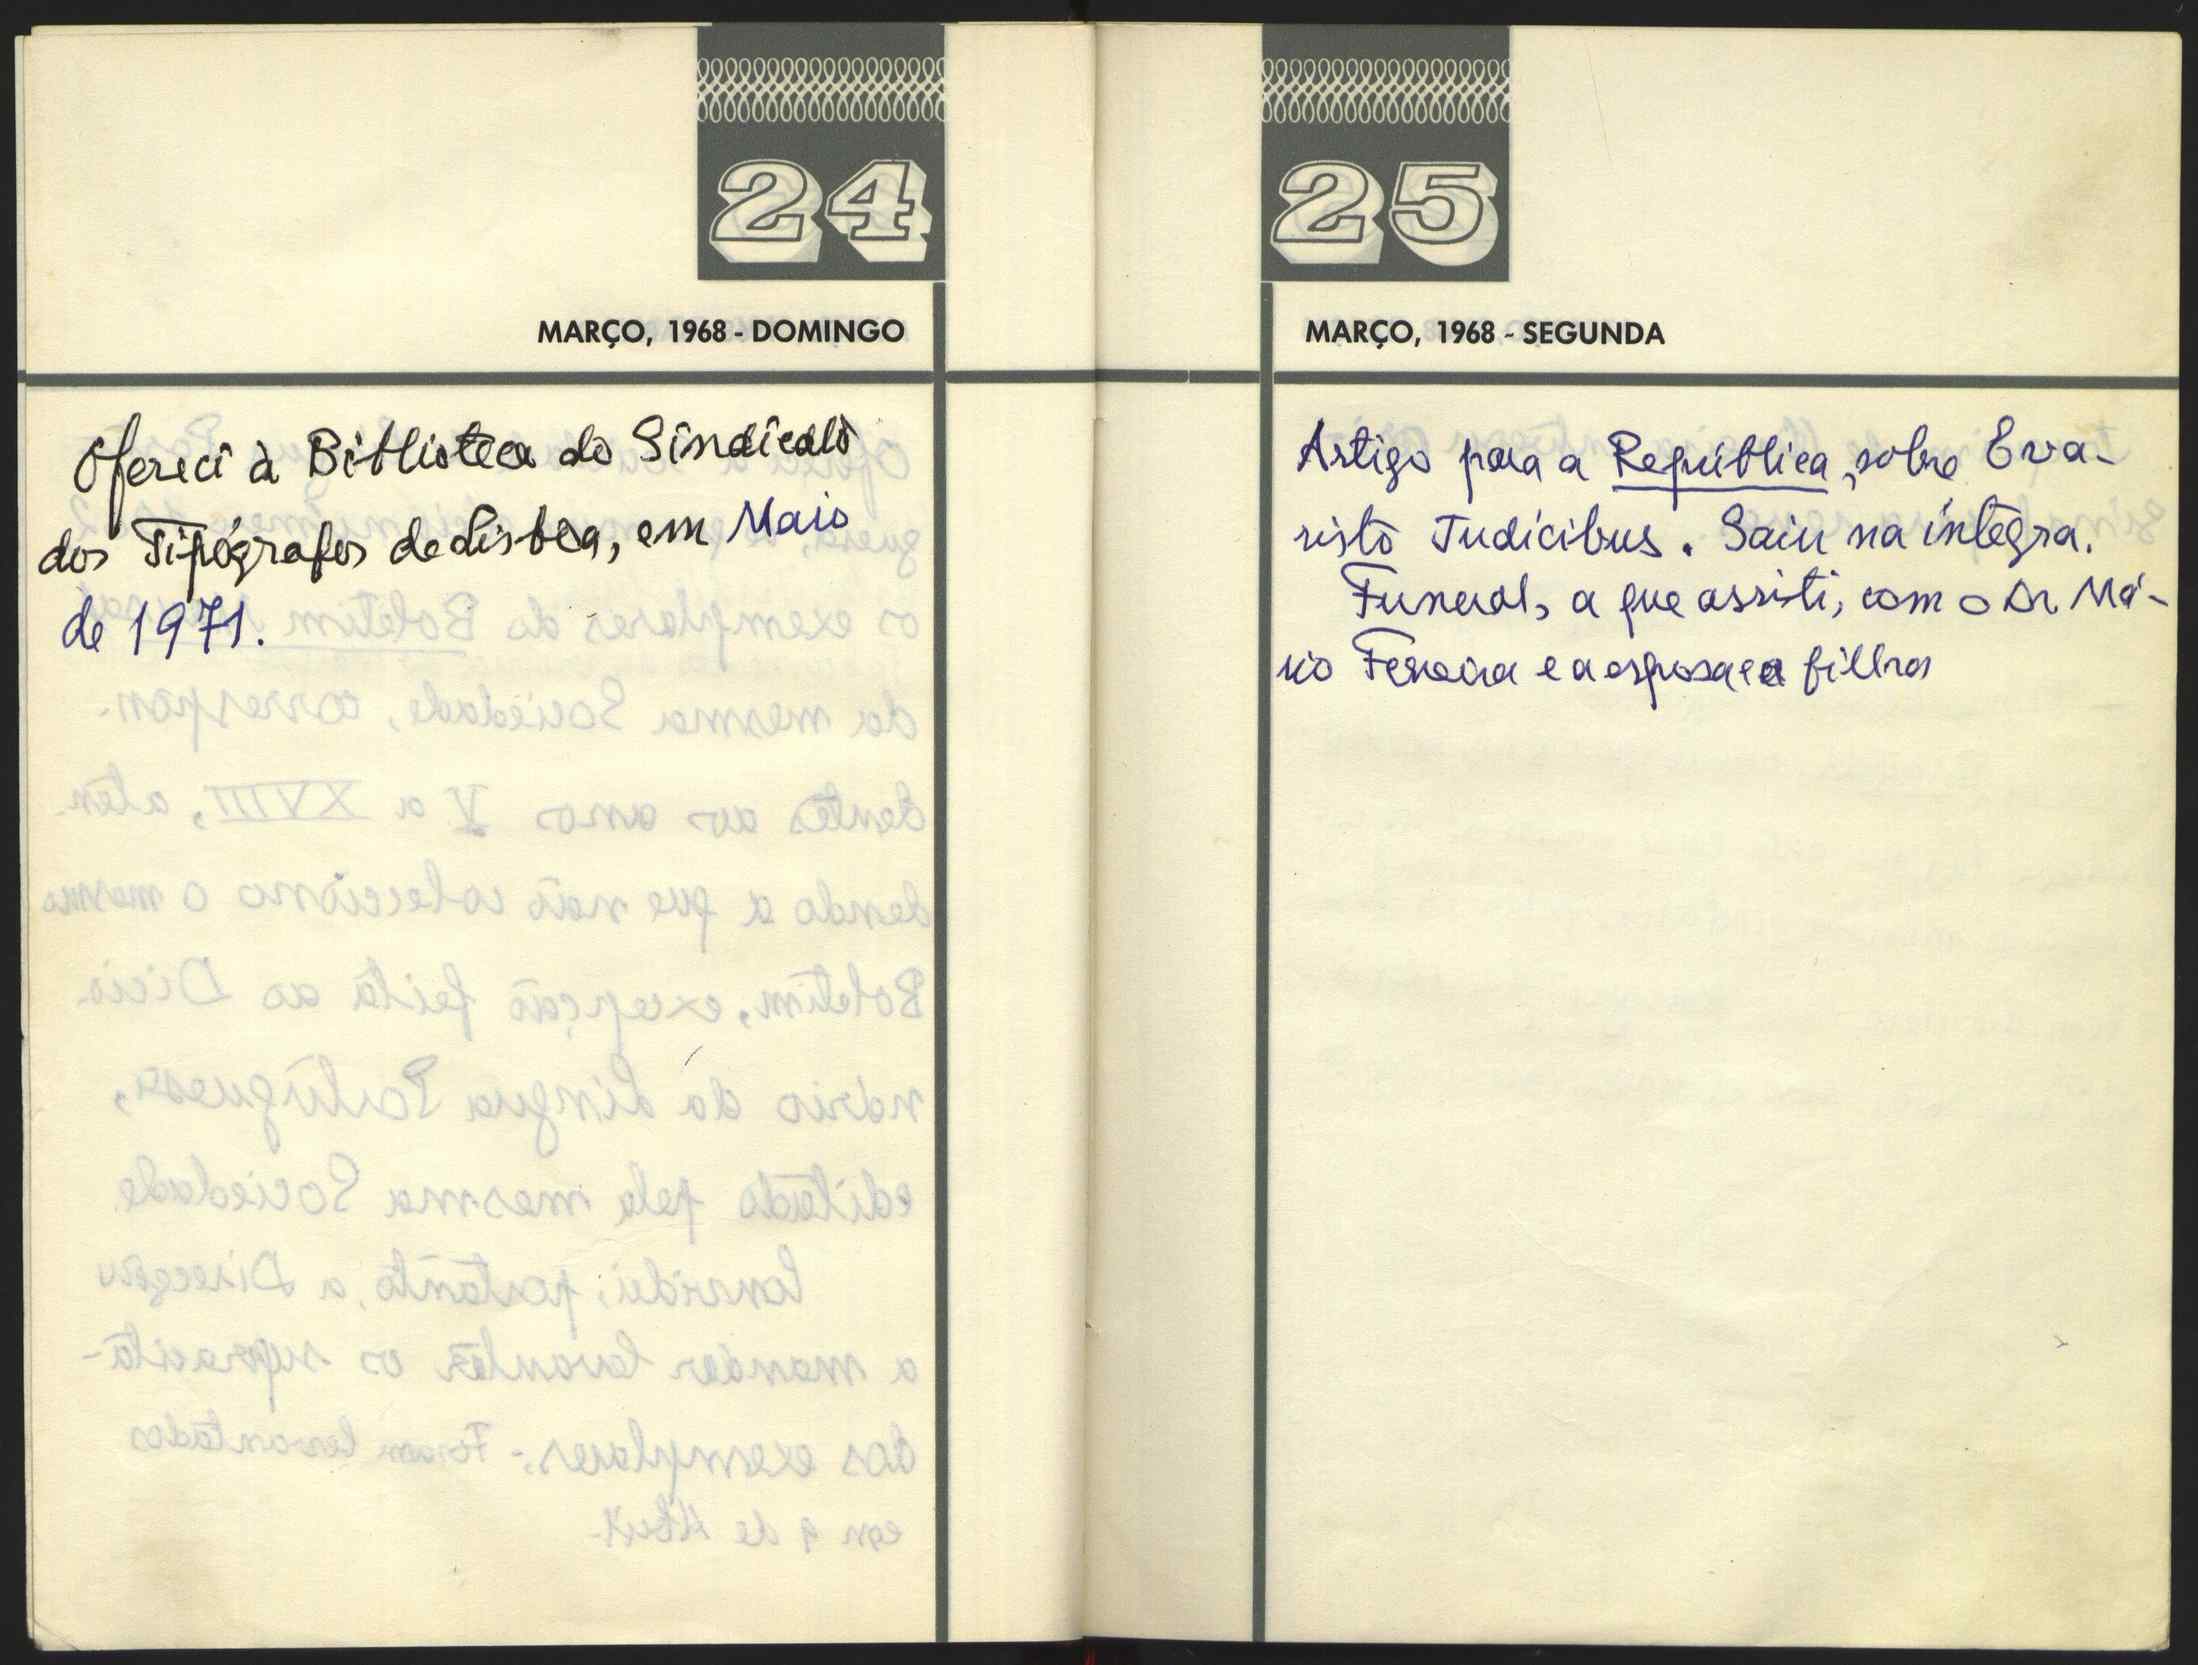 24
MARÇO, 1968 - DOMINGO
Ofereci à Biblioteca do Sindicato
dos Tipógrafos de Lisboa, em Maio
de 1971.
25
MARÇO, 1968 - SEGUNDA
Artigo para a República, sobre Eva-
risto Judicibus. Saiu na íntegra.
Funeral, a que assisti, com o Dr Má-
rio Ferreira e a esposa e a filha